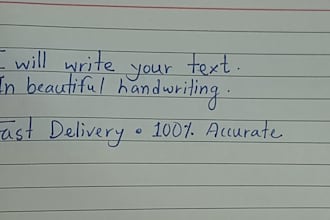 I will write your text.
In beautiful handwriting.
Fast Delivery • 100% Accurate